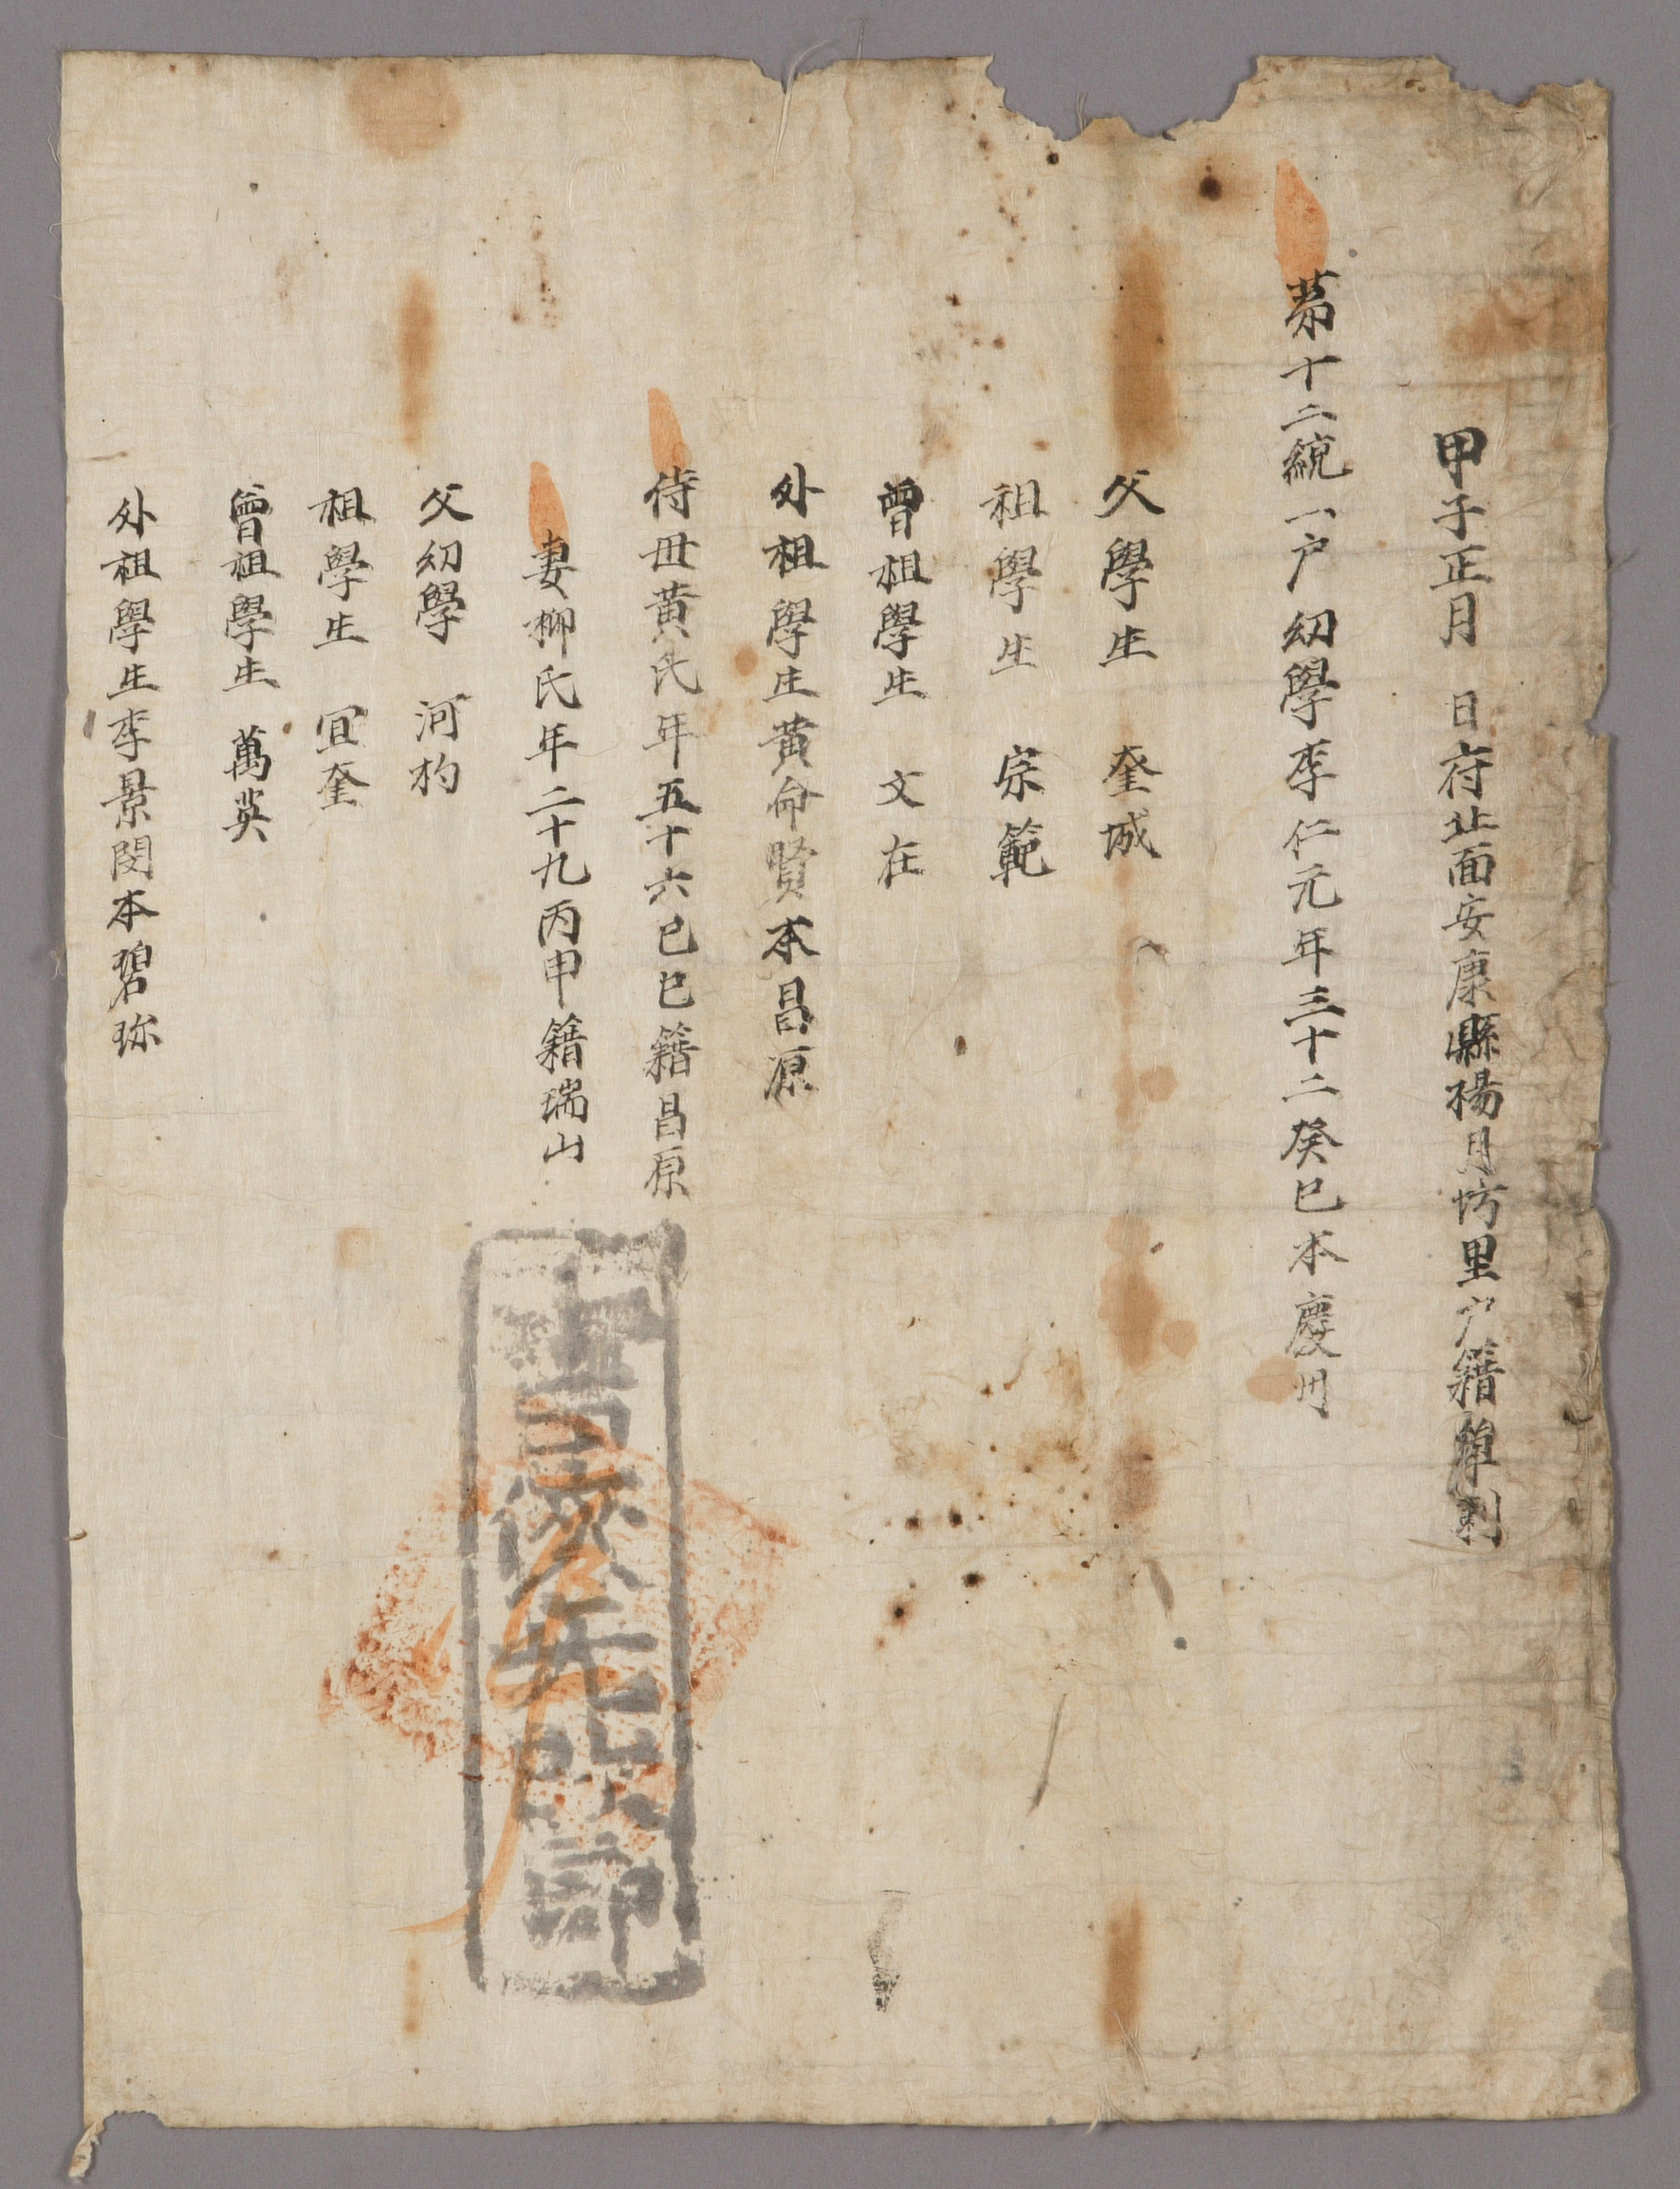 甲子正月　日府北面安康縣楊月坊里户籍單刺
第十二統一户幼學李仁元年三十二癸巳本慶州
父學生　奎城
祖學生　宗範
曾祖學生　文在
外祖學生黃命賢本昌原
侍母黃氏年五十六己巳籍昌原
妻柳氏年二十九丙申籍瑞山
父幼學　河杓
祖學生　宜奎
曾祖學生　萬英
外祖學生李景閔本碧珍